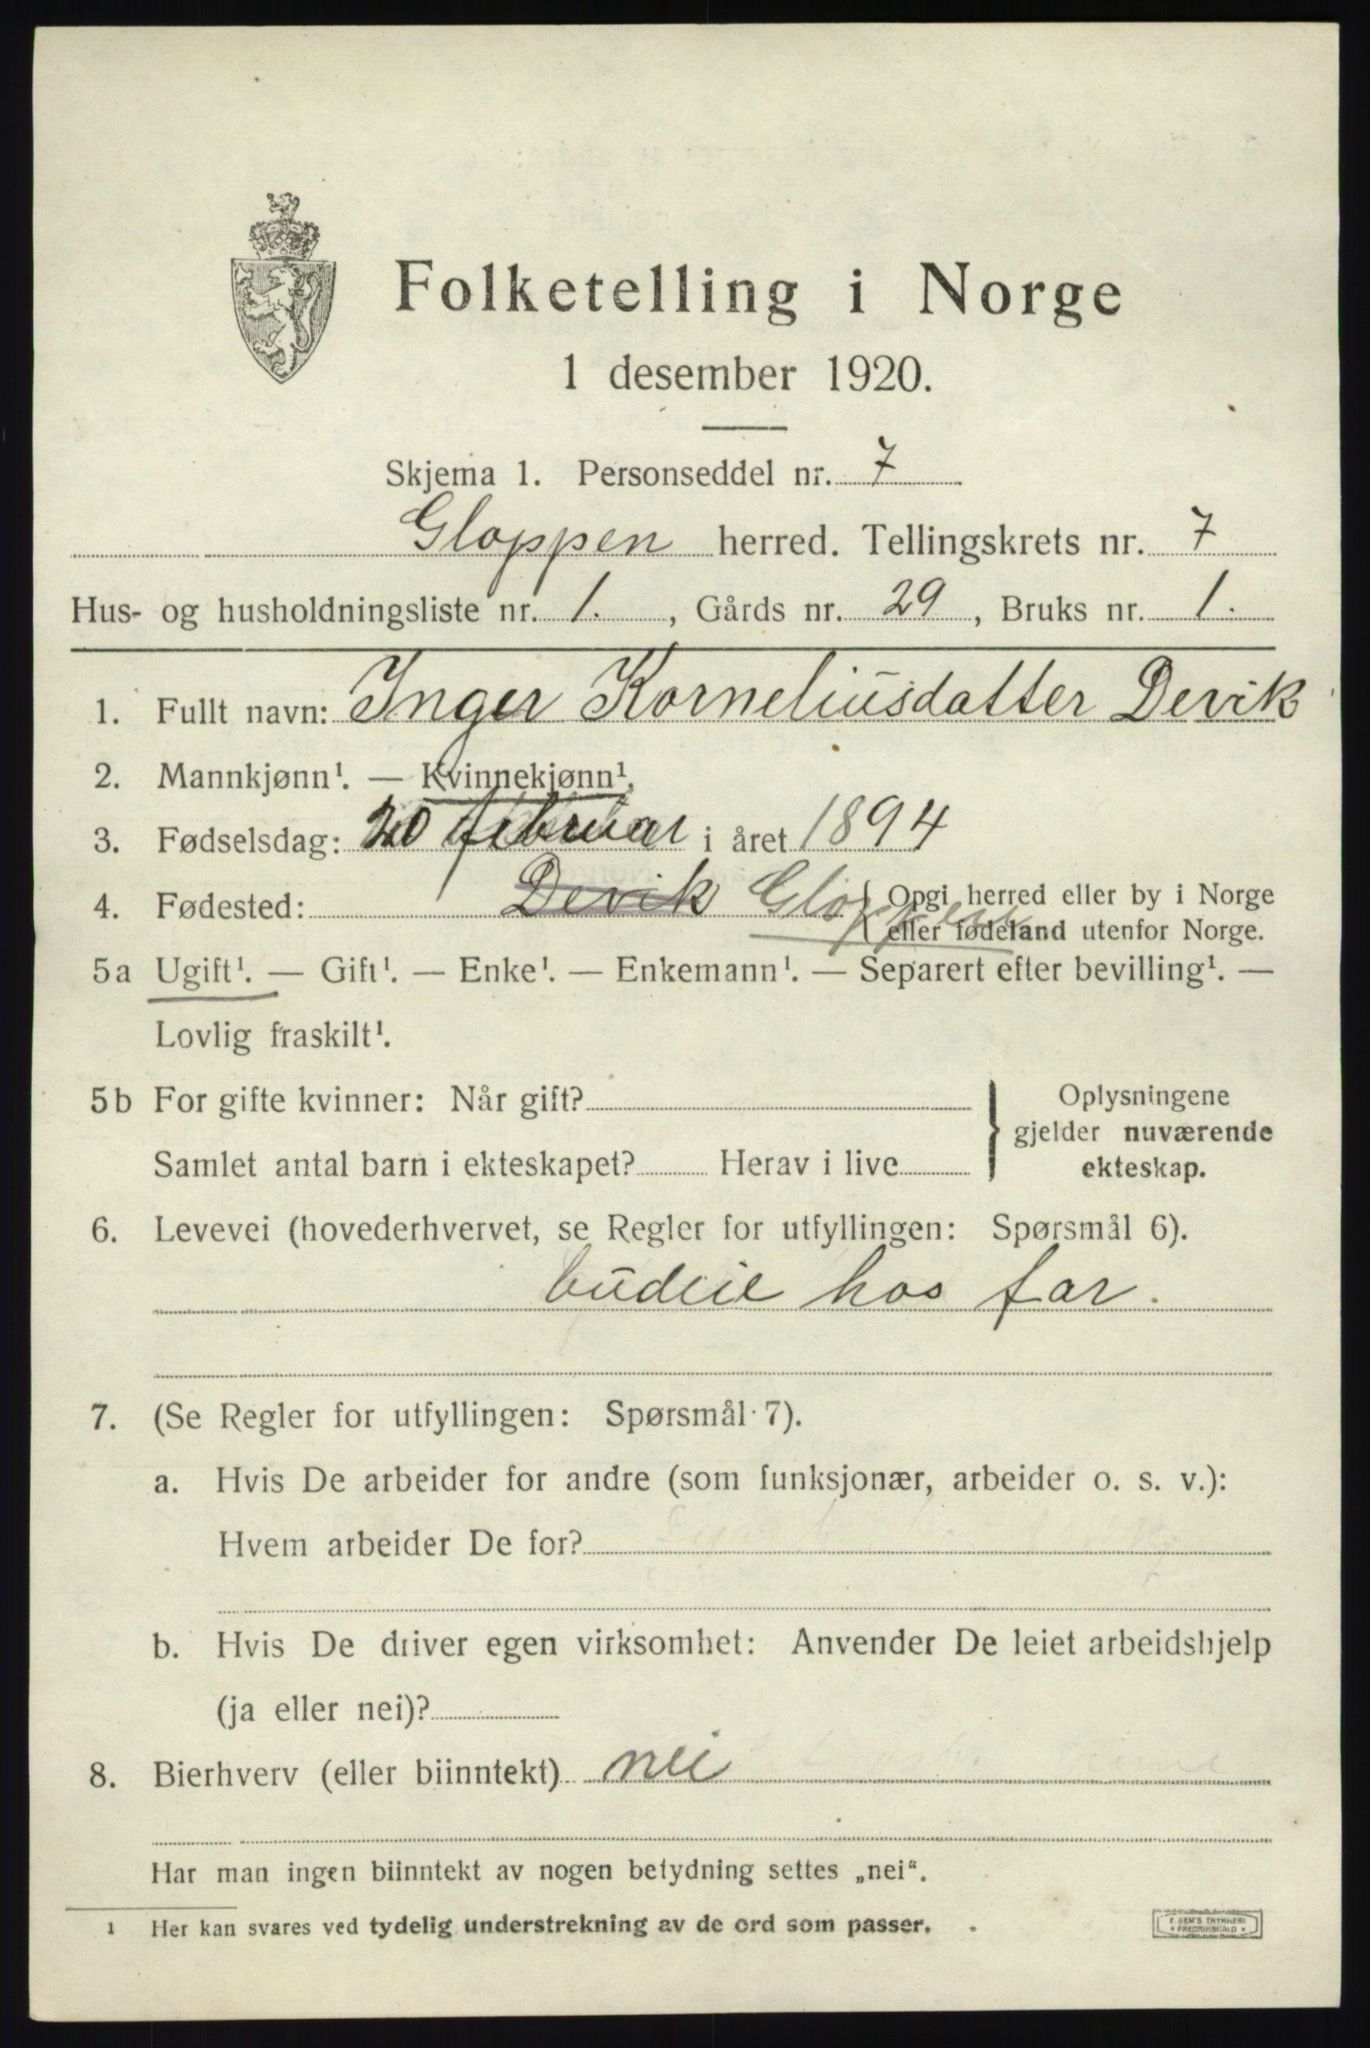 Folketelling i Norge
1 desember 1920.
Skjema 1. Personseddel nr. 7
Gloppen herred. Tellingskrets nr. 7
Hus- og husholdningsliste nr. 1., Gårds nr. 29, Bruks nr. 1.
1. Fullt navn: Inger Korneliusdatter Devik
2. Mannkjønn¹. — Kvinnekjønn¹.
3. Fødselsdag: 20 februar i året 1894
4. Fødested: Devik Gloppen { Opgi herred eller by i Norge
eller fødeland utenfor Norge.
5a Ugift¹. — Gift¹. — Enke¹. — Enkemann¹. — Separert efter bevilling¹. —
Lovlig fraskilt¹.
5b For gifte kvinner: Når gift?
Samlet antal barn i ekteskapet? Herav i live
} Oplysningene
gjelder nuværende
ekteskap.
6. Levevei (hovederhvervet, se Regler for utfyllingen: Spørsmål 6).
budeie hos far.
7. (Se Regler for utfyllingen: Spørsmål 7).
a. Hvis De arbeider for andre (som funksjonær, arbeider o. s. v.):
Hvem arbeider De for?
b. Hvis De driver egen virksomhet: Anvender De leiet arbeidshjelp
(ja eller nei)?
8. Bierhverv (eller biinntekt) nei
Har man ingen biinntekt av nogen betydning settes „nei“.
1 Her kan svares ved tydelig understrekning av de ord som passer.
TRYKKERI
FREDRIKSHALD